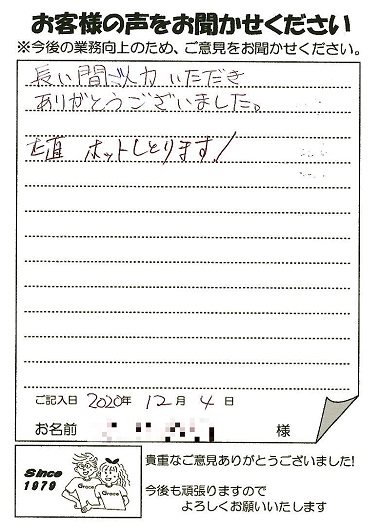 お客様の声をお聞かせください
※今後の業務向上のため、ご意見をお聞かせください。
長い間 いただき
ありがとうございました。
正直 ホットしとります!
ご記入日 2020年 12月 4日
お名前 様
Since
1979
Grace Grace
貴重なご意見ありがとうございました!
今後も頑張りますので
よろしくお願いいたします